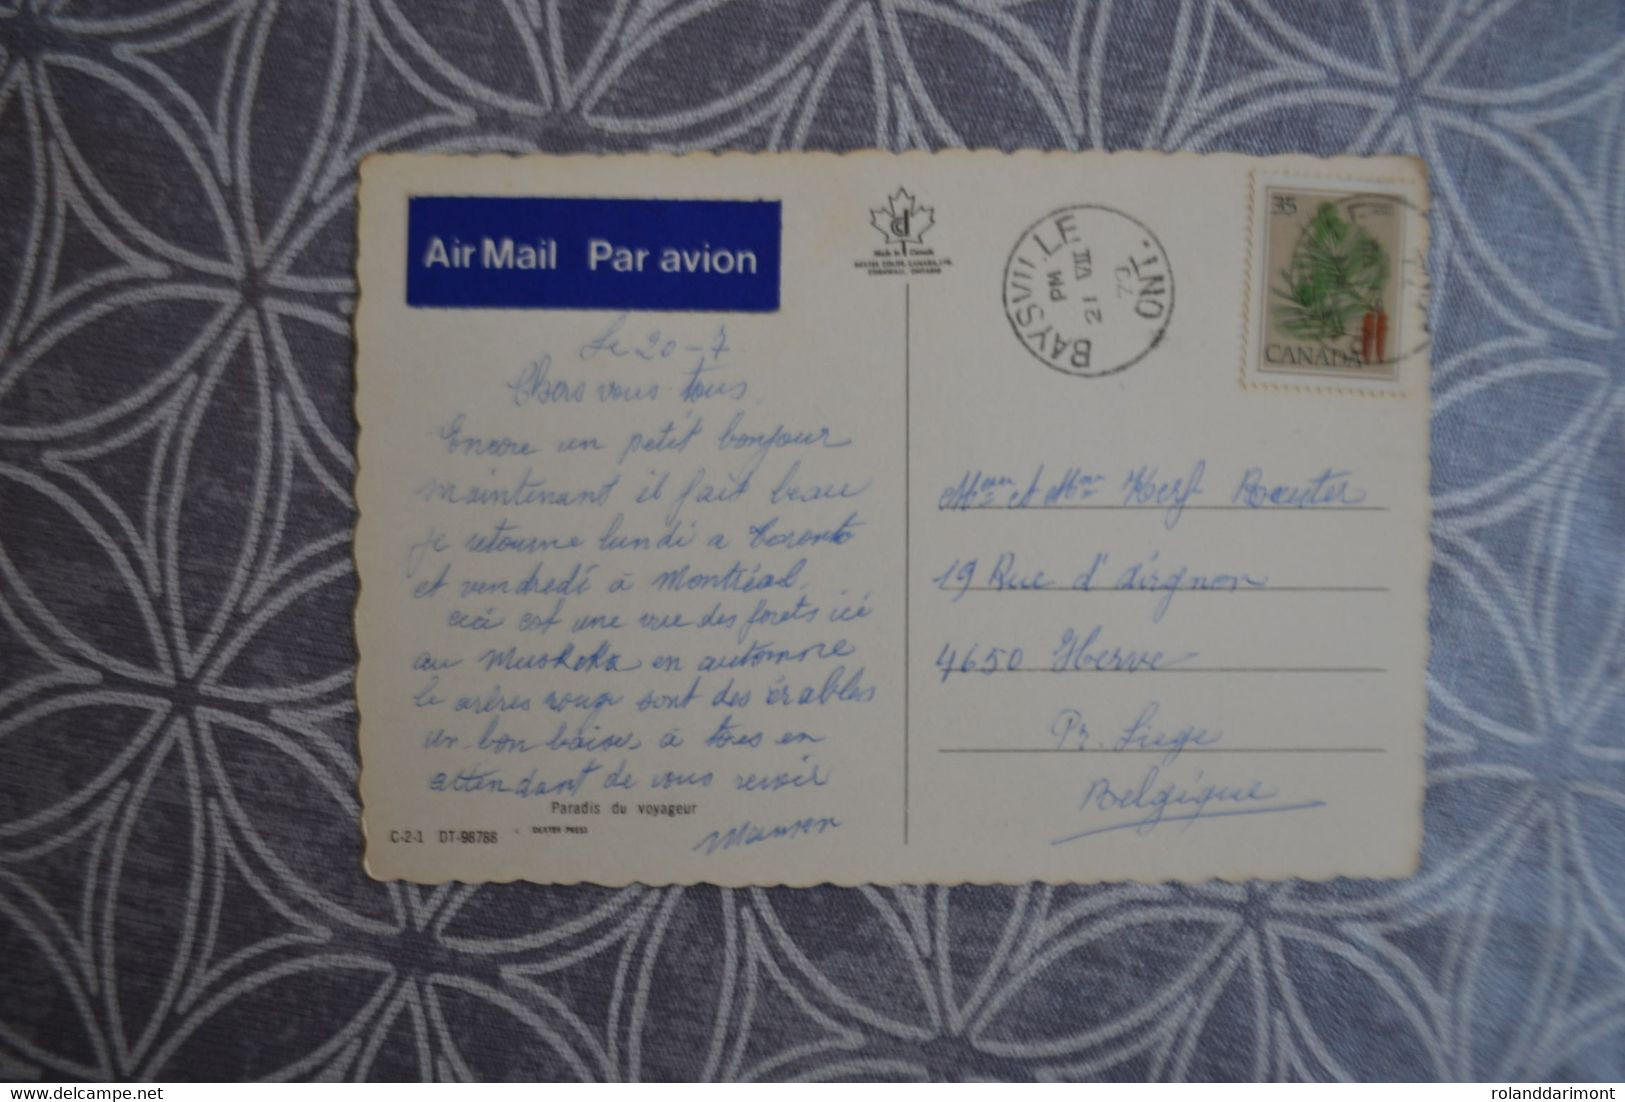 Air Mail Par avion
Made in Canada
DEXTER COLOR CANADA, LTD.
CORNWALL, ONTARIO
BAYSVILLE ONT.
PM
21 VII
35
CANADA
Le 20-7
Chers vous tous
Encore un petit bonjour
maintenant il fait beau
je retourne lundi a Toronto
et vendredi à Montréal.
ceci est une vue des forets ici
au Muskoka en automne
le arbres rouge sont des érables
un bon baiser à tous en
attendant de vous revoir
Paradis du voyageur
C-2-1 DT-98788
DEXTER PRESS
et Kerf
19 Rue d'
4650 Herve
Pr. Liege
Belgique
www.delcampe.net
rolanddarimont